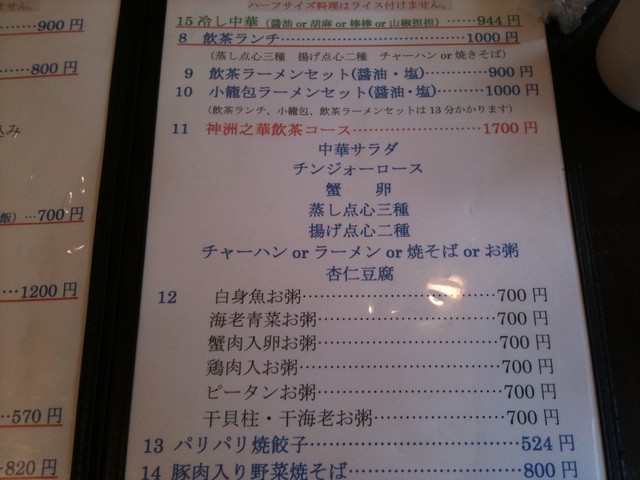 ません。
900円
800円
込み
飯）…700円
1200円
570円
820円
ハーフサイズ料理はライス付けません。
15 冷し中華（醤油 or 胡麻 or 棒棒 or 山椒担担）……944円
8 飲茶ランチ……………………1000円
（蒸し点心三種 揚げ点心二種 チャーハン or 焼きそば）
9 飲茶ラーメンセット(醤油・塩)…………900円
10 小籠包ラーメンセット(醤油・塩)………1000円
（飲茶ランチ、小籠包、飲茶ラーメンセットは13分かかります）
11 神洲之華飲茶コース………………1700円
中華サラダ
チンジャオロース
蟹 卵
蒸し点心三種
揚げ点心二種
チャーハン or ラーメン or 焼そば or お粥
杏仁豆腐
12 白身魚お粥……………………700円
海老青菜お粥……………………700円
蟹肉入卵お粥……………………700円
鶏肉入お粥………………………700円
ピータンお粥……………………700円
干貝柱・干海老お粥……………700円
13 パリパリ焼餃子…………………524円
14 豚肉入り野菜焼そば……………800円